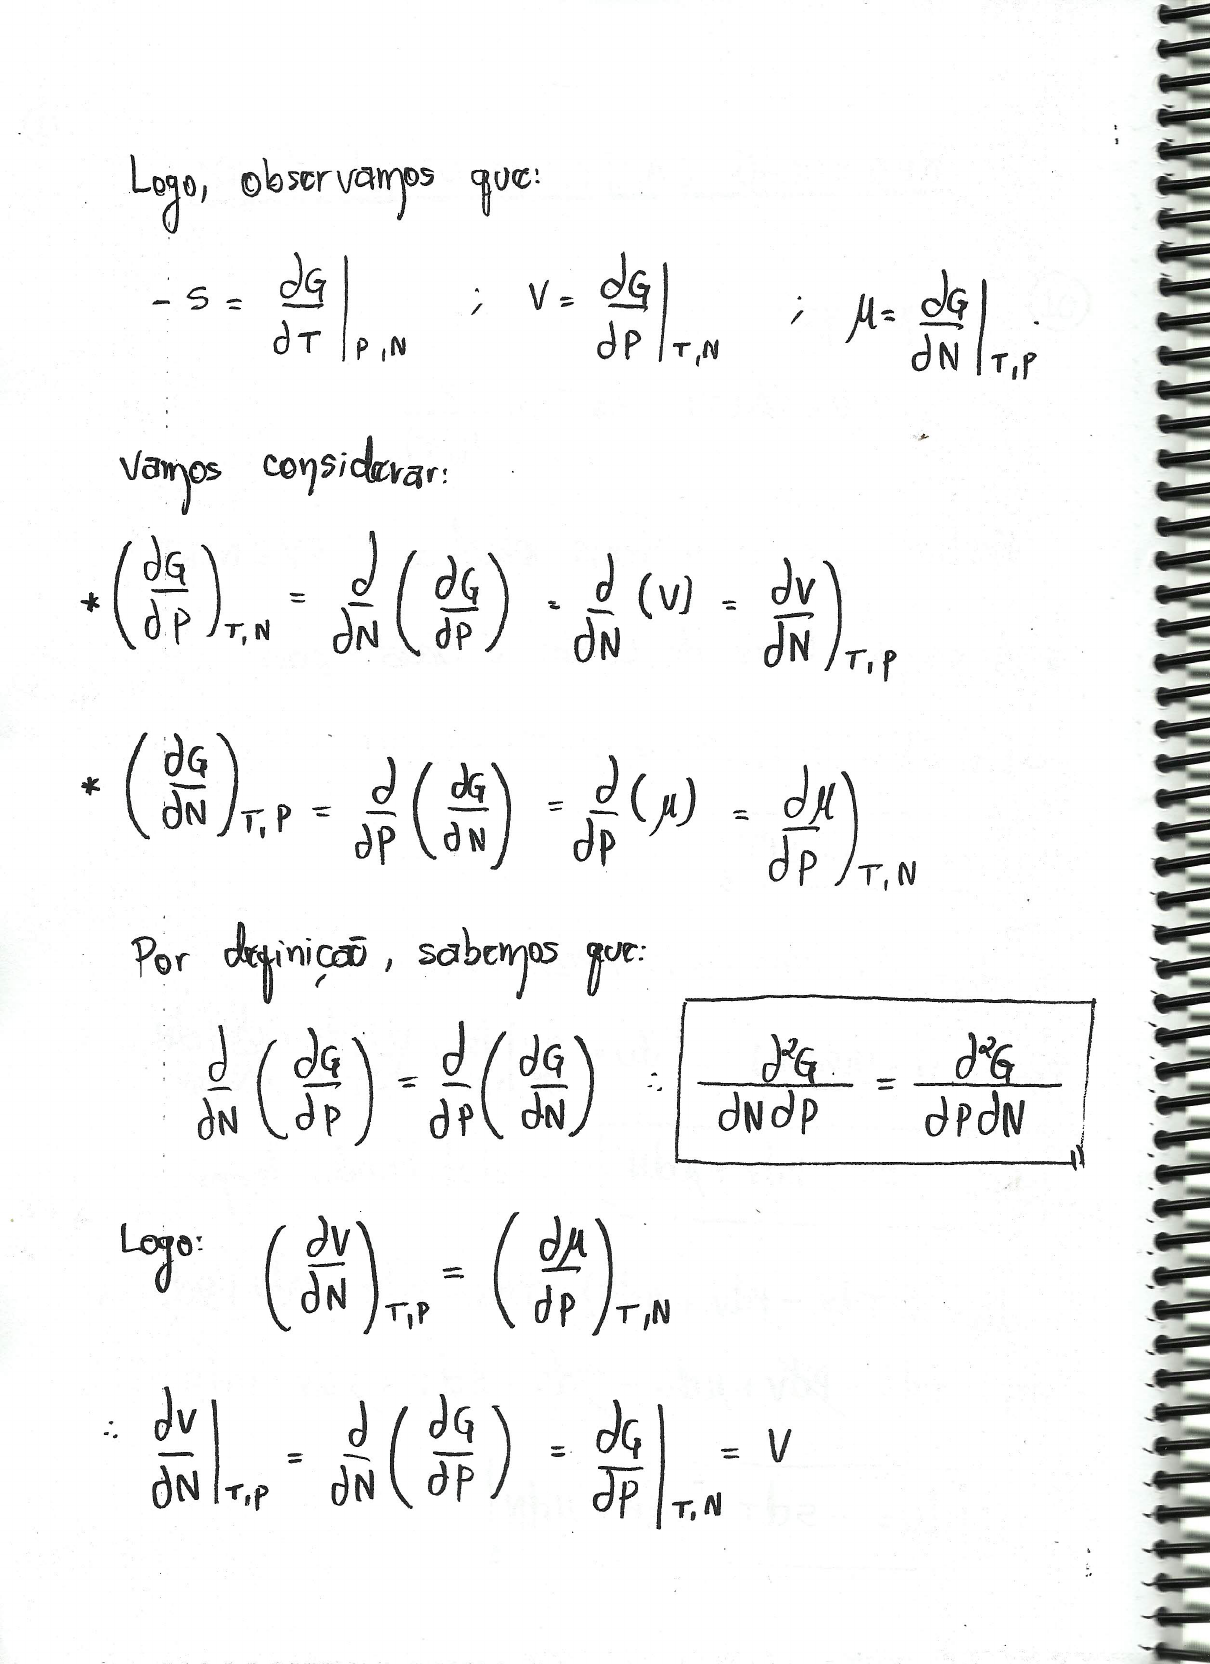 Logo, observamos que:
- S = ∂G/∂T |P,N ; V = ∂G/∂P |T,N ; μ = ∂G/∂N |T,P .
Vamos considerar:
* (∂G/∂P)T,N = ∂/∂N (∂G/∂P) = ∂/∂N (V) = ∂V/∂N )T,P
* (∂G/∂N)T,P = ∂/∂P (∂G/∂N) = ∂/∂P (μ) = ∂μ/∂P )T,N
Por definição, sabemos que:
∂/∂N (∂G/∂P) = ∂/∂P (∂G/∂N) ∴ ∂²G/∂N∂P = ∂²G/∂P∂N //
Logo: (∂V/∂N)T,P = (∂μ/∂P)T,N
∴ ∂V/∂N |T,P = ∂/∂N (∂G/∂P) = ∂G/∂P |T,N = V